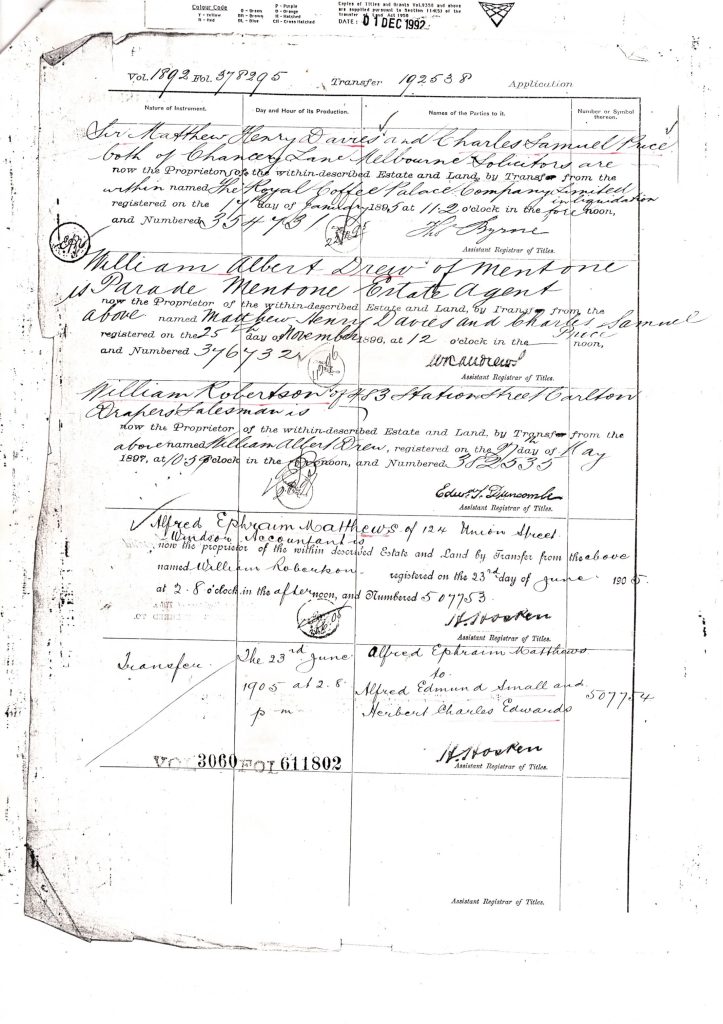 Colour Code
Y - Yellow
R - Red
G - Green
BR - Brown
BL - Blue
P - Purple
O - Orange
H - Hatched
CH - Cross Hatched
Copies of Titles and Grants Vol.9350 and above
are supplied pursuant to Section 114(5) of the
Transfer of Land Act 1958
DATE: 01 DEC 1992
Vol. 1892 Fol. 378295 Transfer 192538 Application
Nature of Instrument. Day and Hour of its Production. Names of the Parties to it. Number or Symbol thereon.
Sir Matthew Henry Davies and Charles Samuel Price
both of Chancery Lane Melbourne Solicitors are
now the Proprietors of the within-described Estate and Land, by Transfer from the
within named The Royal Coffee Palace Company Limited
in liquidation
registered on the 17 day of January 1895 at 11.2 o'clock in the fore noon,
and Numbered 354731
Thos Byrne
Assistant Registrar of Titles.
William Albert Drew of Mentone
Parade Mentone Estate Agent
is
now the Proprietor of the within-described Estate and Land, by Transfer from the
above named Matthew Henry Davies and Charles Samuel
Price
registered on the 25th day of November 1896, at 12 o'clock in the noon,
and Numbered 376732
Assistant Registrar of Titles.
William Robertson of 483 Station Street Carlton
Drapers Salesman is
now the Proprietor of the within-described Estate and Land, by Transfer from the
above named William Albert Drew, registered on the day of May
1897, at o'clock in the noon, and Numbered 382535
Assistant Registrar of Titles.
Alfred Ephraim Matthews of 124 Union Street
Windsor Accountant is
now the proprietor of the within described Estate and Land by Transfer from the above
named William Robertson registered on the 23rd day of June 1905
at 2.8 o'clock in the afternoon, and Numbered 507753
H. Hosken
Assistant Registrar of Titles.
Transfer. The 23rd June 1905 at 2.8 p.m.
Alfred Ephraim Matthews
to
Alfred Edmund Small and
Herbert Charles Edwards
507754
H. Hosken
Assistant Registrar of Titles.
VOL 3060 FOL 611802
Assistant Registrar of Titles.